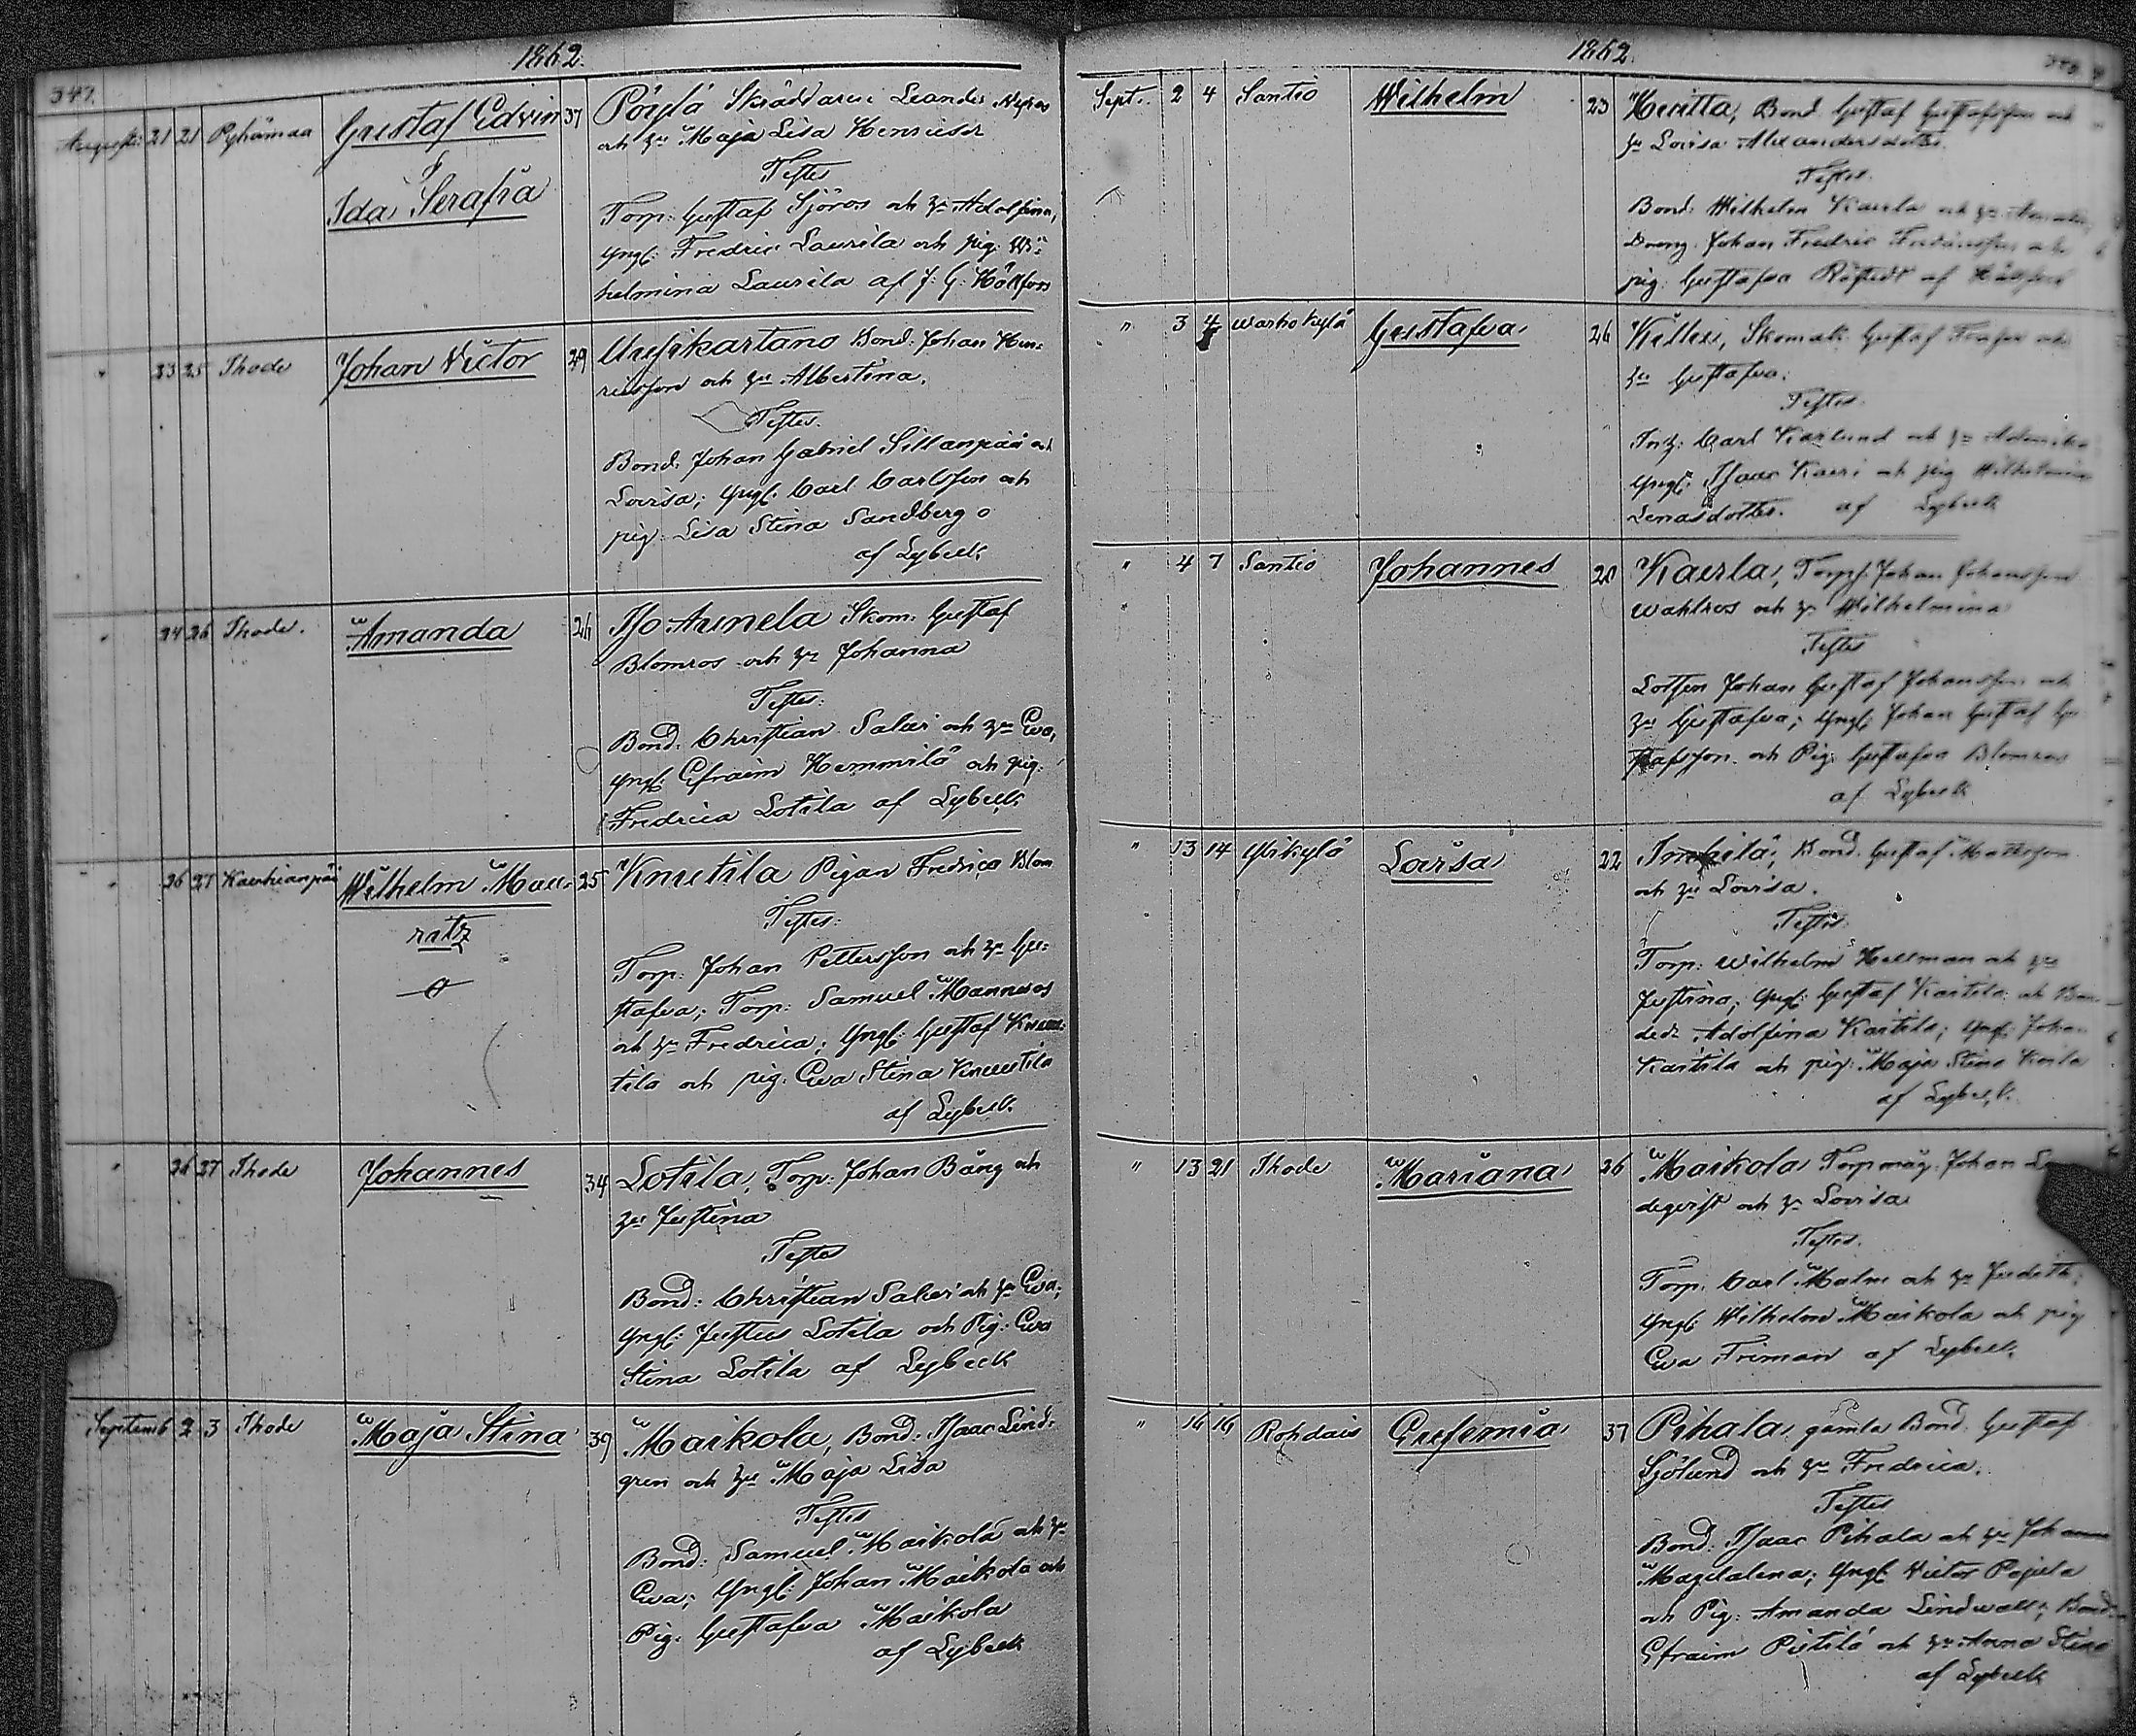 1862.
347.
Augusti 21 21 Pyhämaa Gustaf Edvin 37 Pöylä Skräddaren Leander
& och Hu Maja Lisa Henricsdr
Ida Serafia Testes
Torp: Gustaf Sjöros och Hu Adolfina,
Yngl: Fredric Laurila och pig: Wil=
helmina Laurila af J: G: Hällfors
" 23 25 Ihode Johan Victor 29 Uusikartano Bond. Johan Hen=
ricsson och Hu Albertina.
Testes.
Bond: Johan Gabriel Sillanpää och
Lovisa; Yngl. Carl Carlsson och
pig: Lisa Stina Sandberg
af Lybeck
" 24 26 Ihode. Amanda 26 Iso Aunela Skom. Gustaf
Blomros och Hu Johanna
Testes:
Bond. Christian Salari och Hu Eva,
Yngl: Efraim Hemmilä och pig:
Fredrica Lotila af Lybeck
" 26 27 Kaukianpää Wilhelm Mau= 25 Knutila Pigan Fredrica Blom
ritz Testes:
Torp: Johan Pettersson och Hu Gu=
stafva; Torp: Samuel Mannros
och Hu Fredrica; Yngl: Gustaf Knuu=
tila och pig. Eva Stina Knuutila
af Lybeck.
" 26 27 Ihode Johannes 34 Lotila, Torp: Johan Bång och
Hu Justina
Testes
Bond: Christian Salari och Hu Eva;
Yngl: Justus Lotila och Pig: Eva
Stina Lotila af Lybeck
Septemb 2 3 Ihode Maja Stina 39 Maikola, Bond: Isaac Lind=
gren och Hu Maja Lisa
Testes
Bond: Samuel Maikola och Hu
Eva; Yngl: Johan Maikola och
Pig: Gustafva Maikola
af Lybeck
1862.
Sept. 2 4 Santio Wilhelm 23 Heritta, Bond Gustaf Gustafsson och
Hu Lovisa Alexandersdotter.
Testes.
Bond: Wilhelm Kaerla och Hu
Dreng. Johan Fredric och
pig. Gustafva af Hällfors
" 3 4 Warhokylä Gustafva 26 Skomak. Gustaf och
Hu Gustafva.
Testes.
Carl Karlund och Hu
Yngl: Isaac Kaeri och pig Wilhelmina
Lenasdotter. af Lybeck
" 4 7 Santio Johannes 20 Kaerla, Torp: Johan Johansson
Wahlros och Hu Wilhelmina
Testes
Lotsen Johan Gustaf Johansson och
Hu Gustafva; Yngl: Johan Gustaf Gu=
stafsson och Pig: Gustafva Blomros
af Lybeck
" 13 14 Ylikylä Lovisa 22 Bond. Gustaf Mattsson
och Hu Lovisa.
Testes.
Torp: Wilhelm Hellman och Hu
Justina; Yngl: Gustaf Kaitila och Bon=
dedr Adolfina Kaitila; Yngl: Johan
Kaitila och pig: Maja Stina
af Lybeck.
" 13 21 Ihode Mariana 26 Maikola Torpmåg. Johan
deqvist och Hu Lovisa
Testes.
Torp. Carl Malm och Hu Judith;
Yngl: Wilhelm Maikola och pig
Eva Friman af Lybeck.
" 16 16 Rohdais Eufemia 37 Pihala, gamla Bond. Gustaf
Sjölund och Hu Fredrica.
Testes
Bond: Isaac Pihala och Hu Johanna
Magdalena; Yngl: Victor Pajula
och Pig: Amanda Lindwall; Bond.
Efraim Pietilä och Hu Anna Stina
af Lybeck